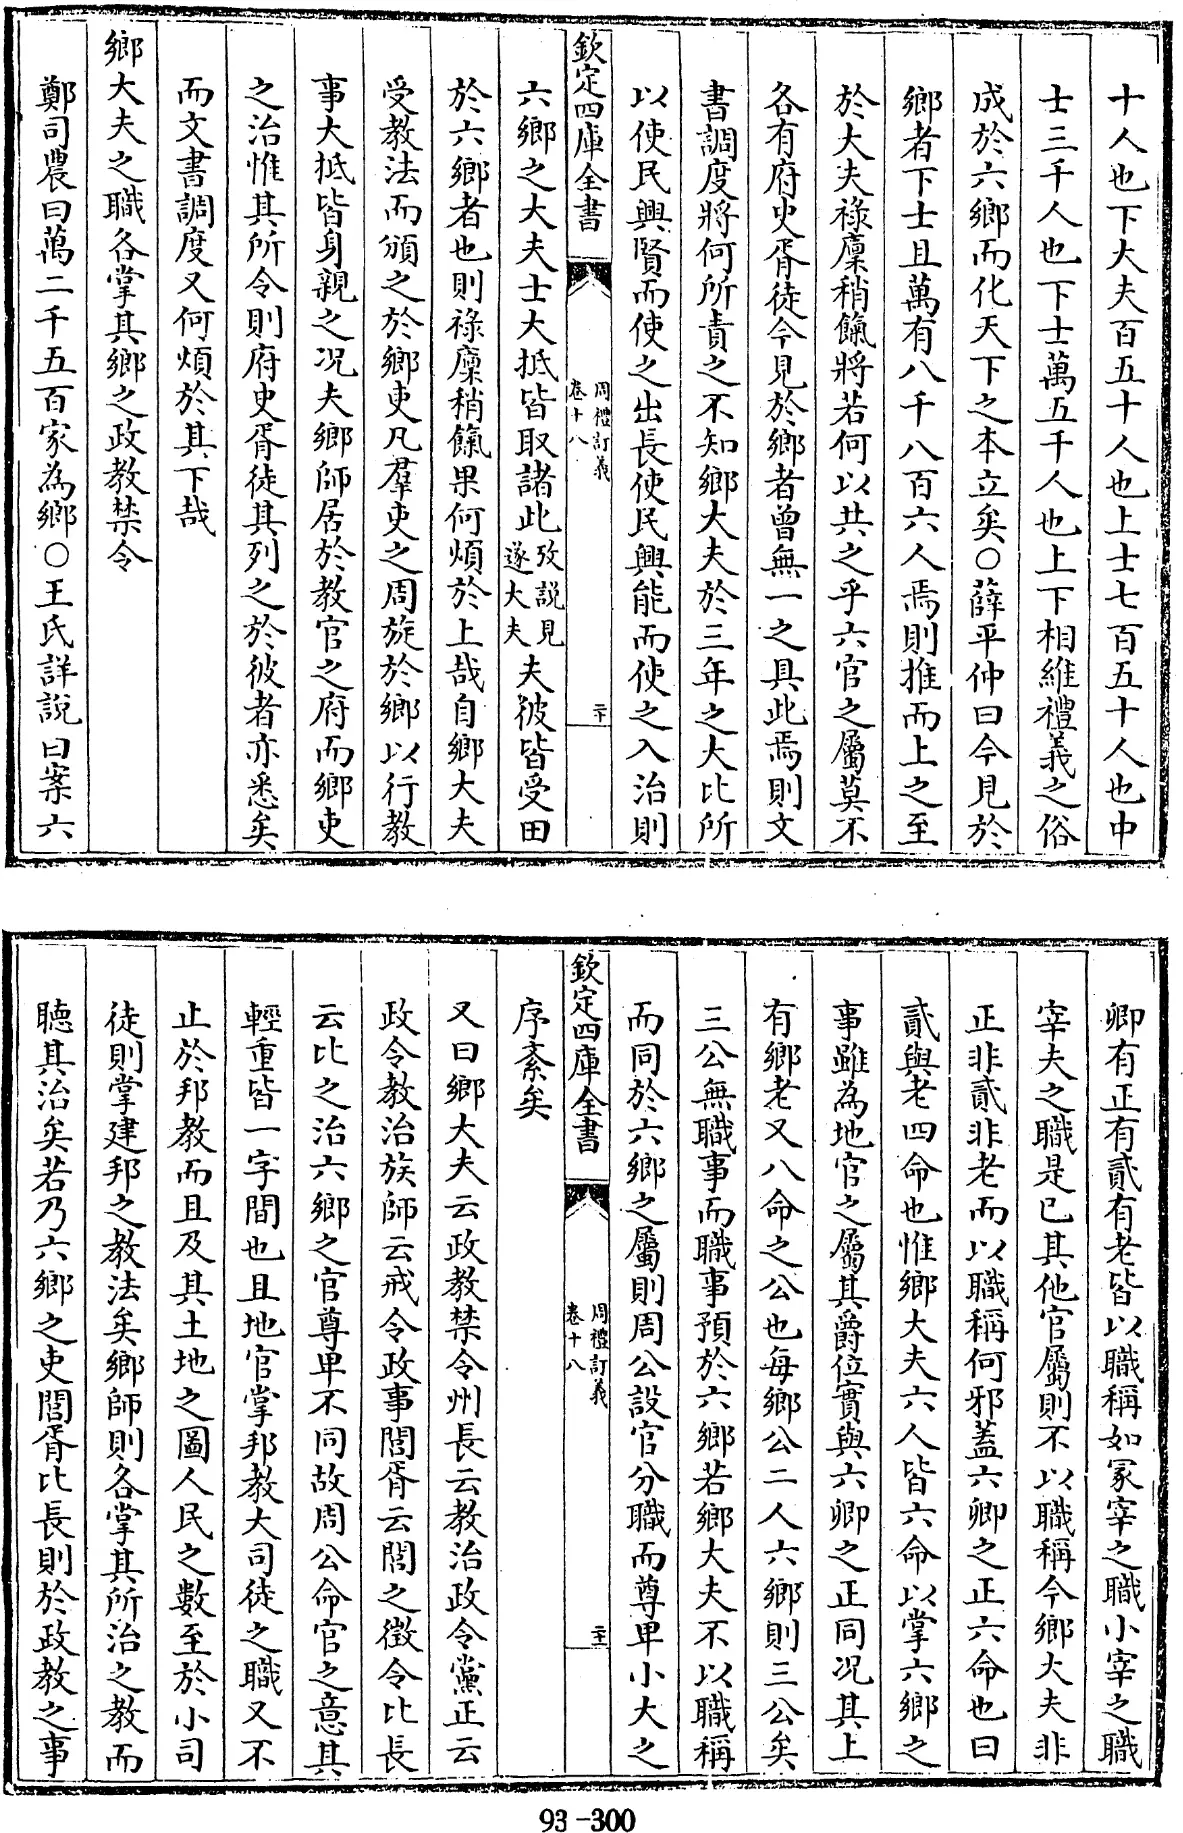 十人也下大夫百五十人也上士七百五十人也中
士三千人也下士萬五千人也上下相維禮義之俗
成於六鄉而化天下之本立矣○薛平仲曰今見於
鄉者下士且萬有八千八百六人焉則推而上之至
於大夫祿廩稍餼將若何以共之乎六官之屬莫不
各有府史胥徒今見於鄉者曾無一之具此焉則文
書調度將何所責之不知鄉大夫於三年之大比所
以使民興賢而使之出長使民興能而使之入治則
欽定四庫全書
周禮訂義
卷十八
二十
六鄉之大夫士大抵皆取諸此攷說見遂大夫夫彼皆受田
於六鄉者也則祿廩稍餼果何煩於上哉自鄉大夫
受教法而頒之於鄉吏凡羣吏之周旋於鄉以行教
事大抵皆身親之况夫鄉師居於教官之府而鄉吏
之治惟其所令則府史胥徒其列之於彼者亦悉矣
而文書調度又何煩於其下哉
鄉大夫之職各掌其鄉之政教禁令
鄭司農曰萬二千五百家為鄉○王氏詳說曰案六
卿有正有貳有老皆以職稱如冢宰之職小宰之職
宰夫之職是已其他官屬則不以職稱今鄉大夫非
正非貳非老而以職稱何邪蓋六卿之正六命也曰
貳與老四命也惟鄉大夫六人皆六命以掌六鄉之
事雖為地官之屬其爵位實與六卿之正同况其上
有鄉老又八命之公也每鄉公二人六鄉則三公矣
三公無職事而職事預於六鄉若鄉大夫不以職稱
而同於六鄉之屬則周公設官分職而尊卑小大之
欽定四庫全書
周禮訂義
卷十八
二十一
序紊矣
又曰鄉大夫云政教禁令州長云教治政令黨正云
政令教治族師云戒令政事閭胥云閭之徵令比長
云比之治六鄉之官尊卑不同故周公命官之意其
輕重皆一字間也且地官掌邦教大司徒之職又不
止於邦教而且及其土地之圖人民之數至於小司
徒則掌建邦之教法矣鄉師則各掌其所治之教而
聽其治矣若乃六鄉之吏閭胥比長則於政教之事
93-300